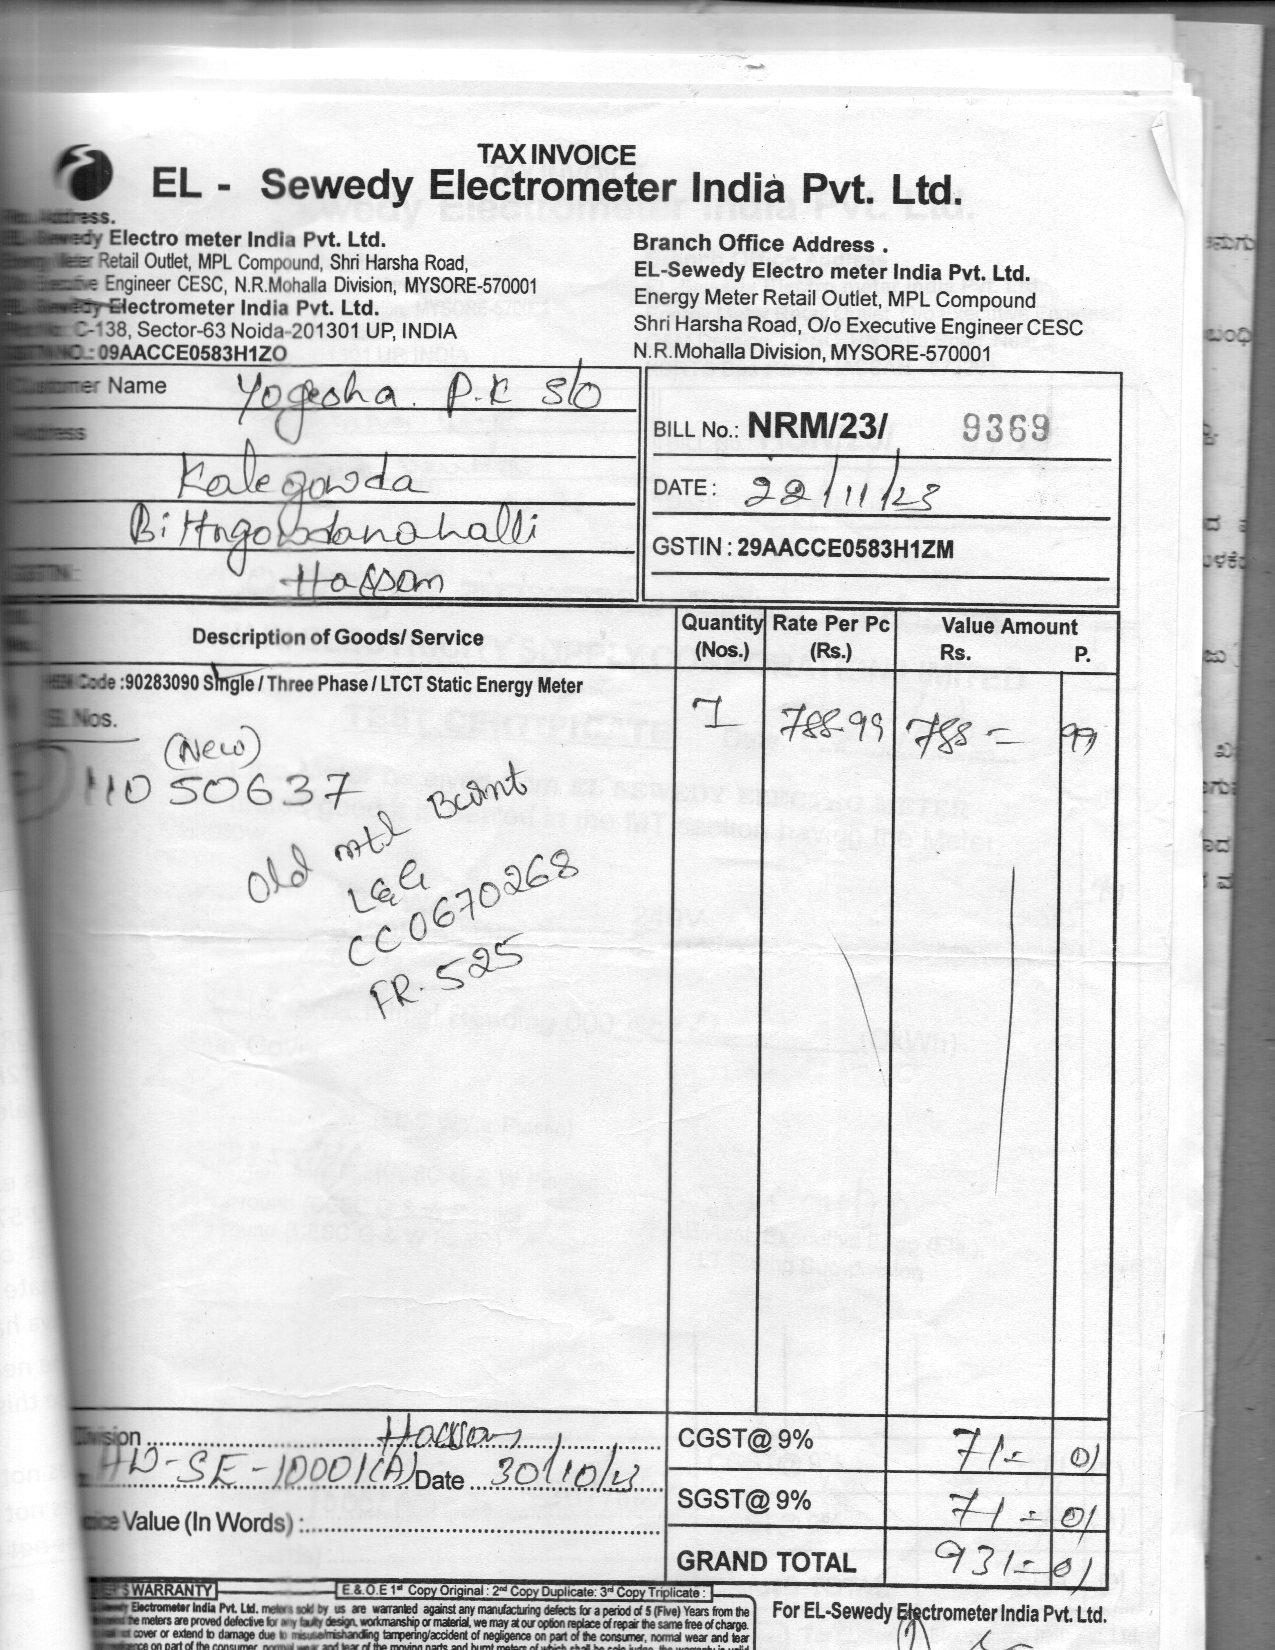 TAX INVOICE
EL - Sewedy Electrometer India Pvt. Ltd.
Address.
Sewedy Electro meter India Pvt. Ltd.
Meter Retail Outlet, MPL Compound, Shri Harsha Road,
Engineer CESC, N.R.Mohalla Division, MYSORE-570001
Sewedy Electrometer India Pvt. Ltd.
C-138, Sector-63 Noida-201301 UP, INDIA
GSTIN NO.: 09AACCE0583H1ZO
Branch Office Address .
EL-Sewedy Electro meter India Pvt. Ltd.
Energy Meter Retail Outlet, MPL Compound
Shri Harsha Road, O/o Executive Engineer CESC
N.R.Mohalla Division, MYSORE-570001
Customer Name Yogesha. P.K S/O
Address
Kalegowda
Bittngowdanahalli
GSTIN : Hassan
BILL No.: NRM/23/ 9369
DATE : 22/11/23
GSTIN : 29AACCE0583H1ZM
Description of Goods/ Service
Quantity (Nos.)
Rate Per Pc (Rs.)
Value Amount
Rs. P.
HSN Code :90283090 Single / Three Phase / LTCT Static Energy Meter
Sl. Nos.
1 788-99 788 = 99
(New)
11050637
Old mtr Burnt
L&G
CC0670268
FR. 525
Division Hassan
HD-SE-10001(A) Date 30/10/23
Value (In Words) :
CGST@ 9% 71= 01
SGST@ 9% 71 = 01
GRAND TOTAL 931= 01
WARRANTY
E & O.E 1st Copy Original : 2nd Copy Duplicate: 3rd Copy Triplicate :
Electrometer India Pvt. Ltd. meters sold by us are warranted against any manufacturing defects for a period of 5 (Five) Years from the
the meters are proved defective for any faulty design, workmanship or material, we may at our option replace of repair the same free of charge.
cover or extend to damage due to misuse/mishandling tampering/accident of negligence on part of the consumer, normal wear and tear
For EL-Sewedy Electrometer India Pvt. Ltd.